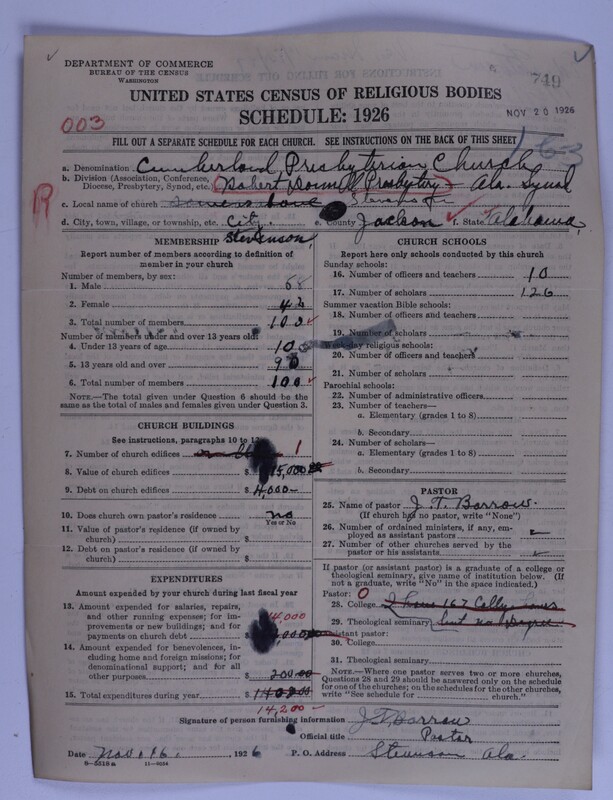 DEPARTMENT OF COMMERCE
BUREAU OF THE CENSUS
WASHINGTON
749
UNITED STATES CENSUS OF RELIGIOUS BODIES
SCHEDULE: 1926
NOV 20 1926
003
FILL OUT A SEPARATE SCHEDULE FOR EACH CHURCH. SEE INSTRUCTIONS ON THE BACK OF THIS SHEET
163
a. Denomination Cumberland Presbyterian Church
b. Division (Association, Conference, Diocese, Presbytery, Synod, etc.) (Robert Donnell Presbytery) Ala. Synod
R
c. Local name of church
d. City, town, village, or township, etc. City. Stevenson, e. County Jackson f. State Alabama,
MEMBERSHIP
Report number of members according to definition of member in your church
Number of members, by sex:
1. Male
2. Female
3. Total number of members
Number of members under and over 13 years old:
4. Under 13 years of age 10
5. 13 years old and over 90
6. Total number of members 100
NOTE.—The total given under Question 6 should be the same as the total of males and females given under Question 3.
CHURCH BUILDINGS
See instructions, paragraphs 10 to
7. Number of church edifices 1
8. Value of church edifices $ 15,000
9. Debt on church edifices $ 4,000—
10. Does church own pastor's residence? no
Yes or No
11. Value of pastor's residence (if owned by church) $
12. Debt on pastor's residence (if owned by church) $
EXPENDITURES
Amount expended by your church during last fiscal year
13. Amount expended for salaries, repairs, and other running expense; for improvements or new buildings; and for payments on church debt 14,000
14. Amount expended for benevolences, including home and foreign missions; for denominational support; and for all other purposes $ 200.00
15. Total expenditures during year $
14,200 —
CHURCH SCHOOLS
Report here only schools conducted by this church
Sunday schools:
16. Number of officers and teachers 10
17. Number of scholars 126
Summer vacation Bible schools:
18. Number of officers and teachers
19. Number of scholars
Week-day religious schools:
20. Number of officers and teachers
21. Number of scholars
Parochial schools:
22. Number of administrative officers
23. Number of teachers—
a. Elementary (grades 1 to 8)
b. Secondary
24. Number of scholars—
a. Elementary (grades 1 to 8)
b. Secondary
PASTOR
25. Name of pastor J. T. Barrow.
(If church has no pastor, write "None")
26. Number of ordained ministers, if any, employed as assistant pastors
27. Number of other churches served by the pastor or his assistants
If pastor (or assistant pastor) is a graduate of a college or theological seminary, give name of institution below. (If not a graduate, write "No" in the space indicated.)
Pastor: 0
28. College I have 167 Colleg
29. Theological seminary but no Degree
Assistant pastor:
30. College
31. Theological seminary
NOTE.—Where one pastor serves two or more churches, Questions 28 and 29 should be answered only on the schedule for one of the churches; on the schedules for the other churches, write "See schedule for church."
Signature of person furnishing information J. T. Barrow
Official title Pastor
Date Nov. 16. , 1926 P. O. Address Stevenson Ala.
8—5518a 11—9034